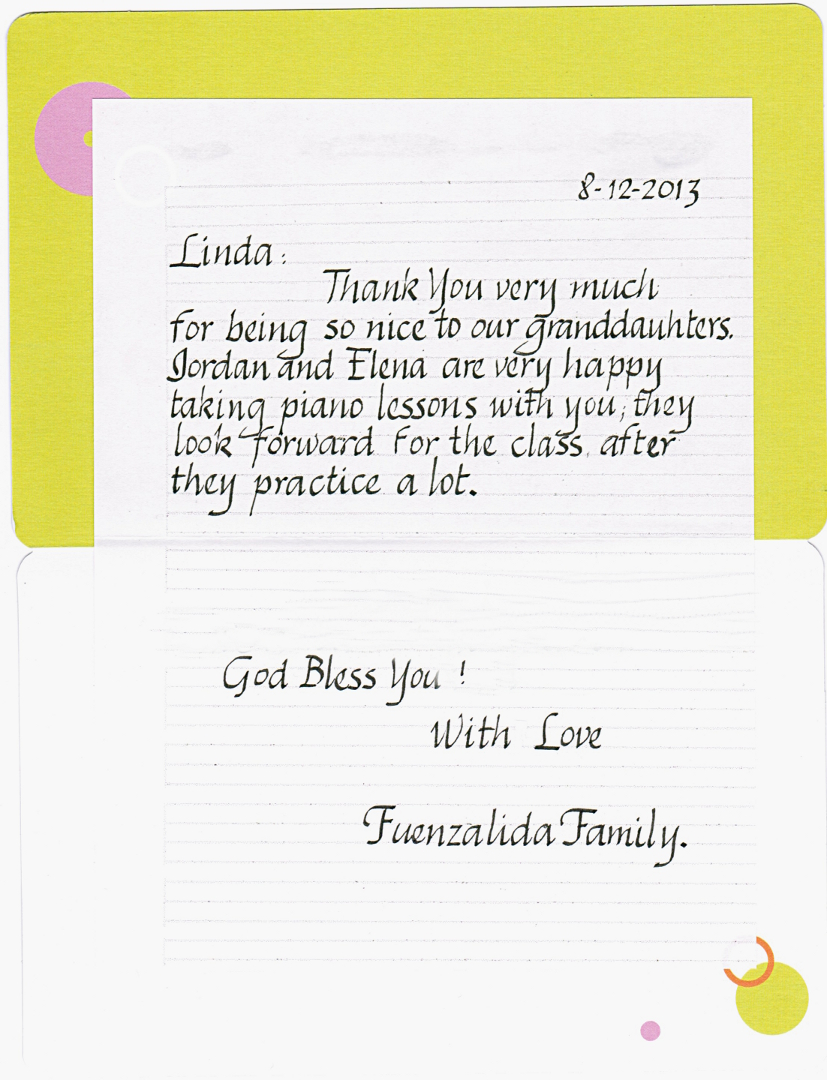 8-12-2013
Linda:
Thank You very much
for being so nice to our granddauhters.
Jordan and Elena are very happy
taking piano lessons with you, they
look forward for the class, after
they practice a lot.
God Bless You !
With Love
Fuenzalida Family.